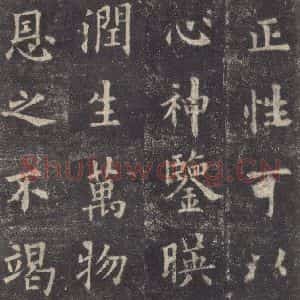 正性可以
心神鑒暎
潤生萬物
恩之不竭
Shufawang.CN